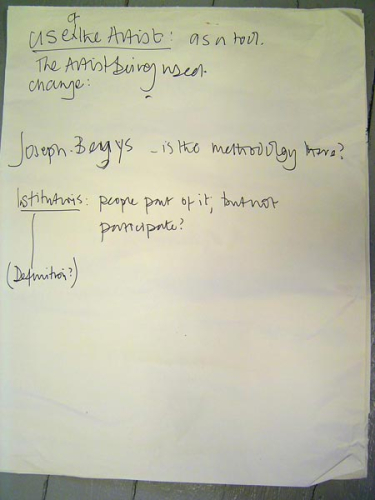 use of the Artist: as a tool.
The Artist Being used.
change:
Joseph Beuys - is the methodology there?
Institutions: people part of it, but not
participate?
(Definition?)